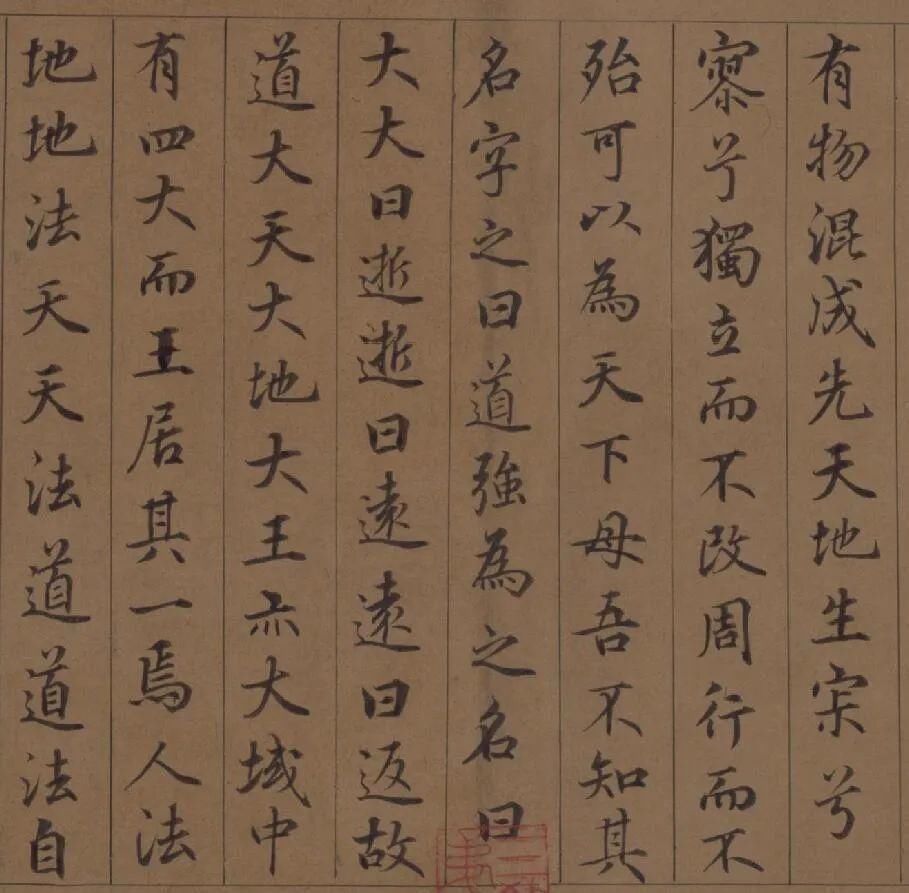 有物混成先天地生寂兮
寥兮獨立而不改周行而不
殆可以為天下母吾不知其
名字之曰道強為之名曰
大大曰逝逝曰遠遠曰返故
道大天大地大王亦大域中
有四大而王居其一焉人法
地地法天天法道道法自